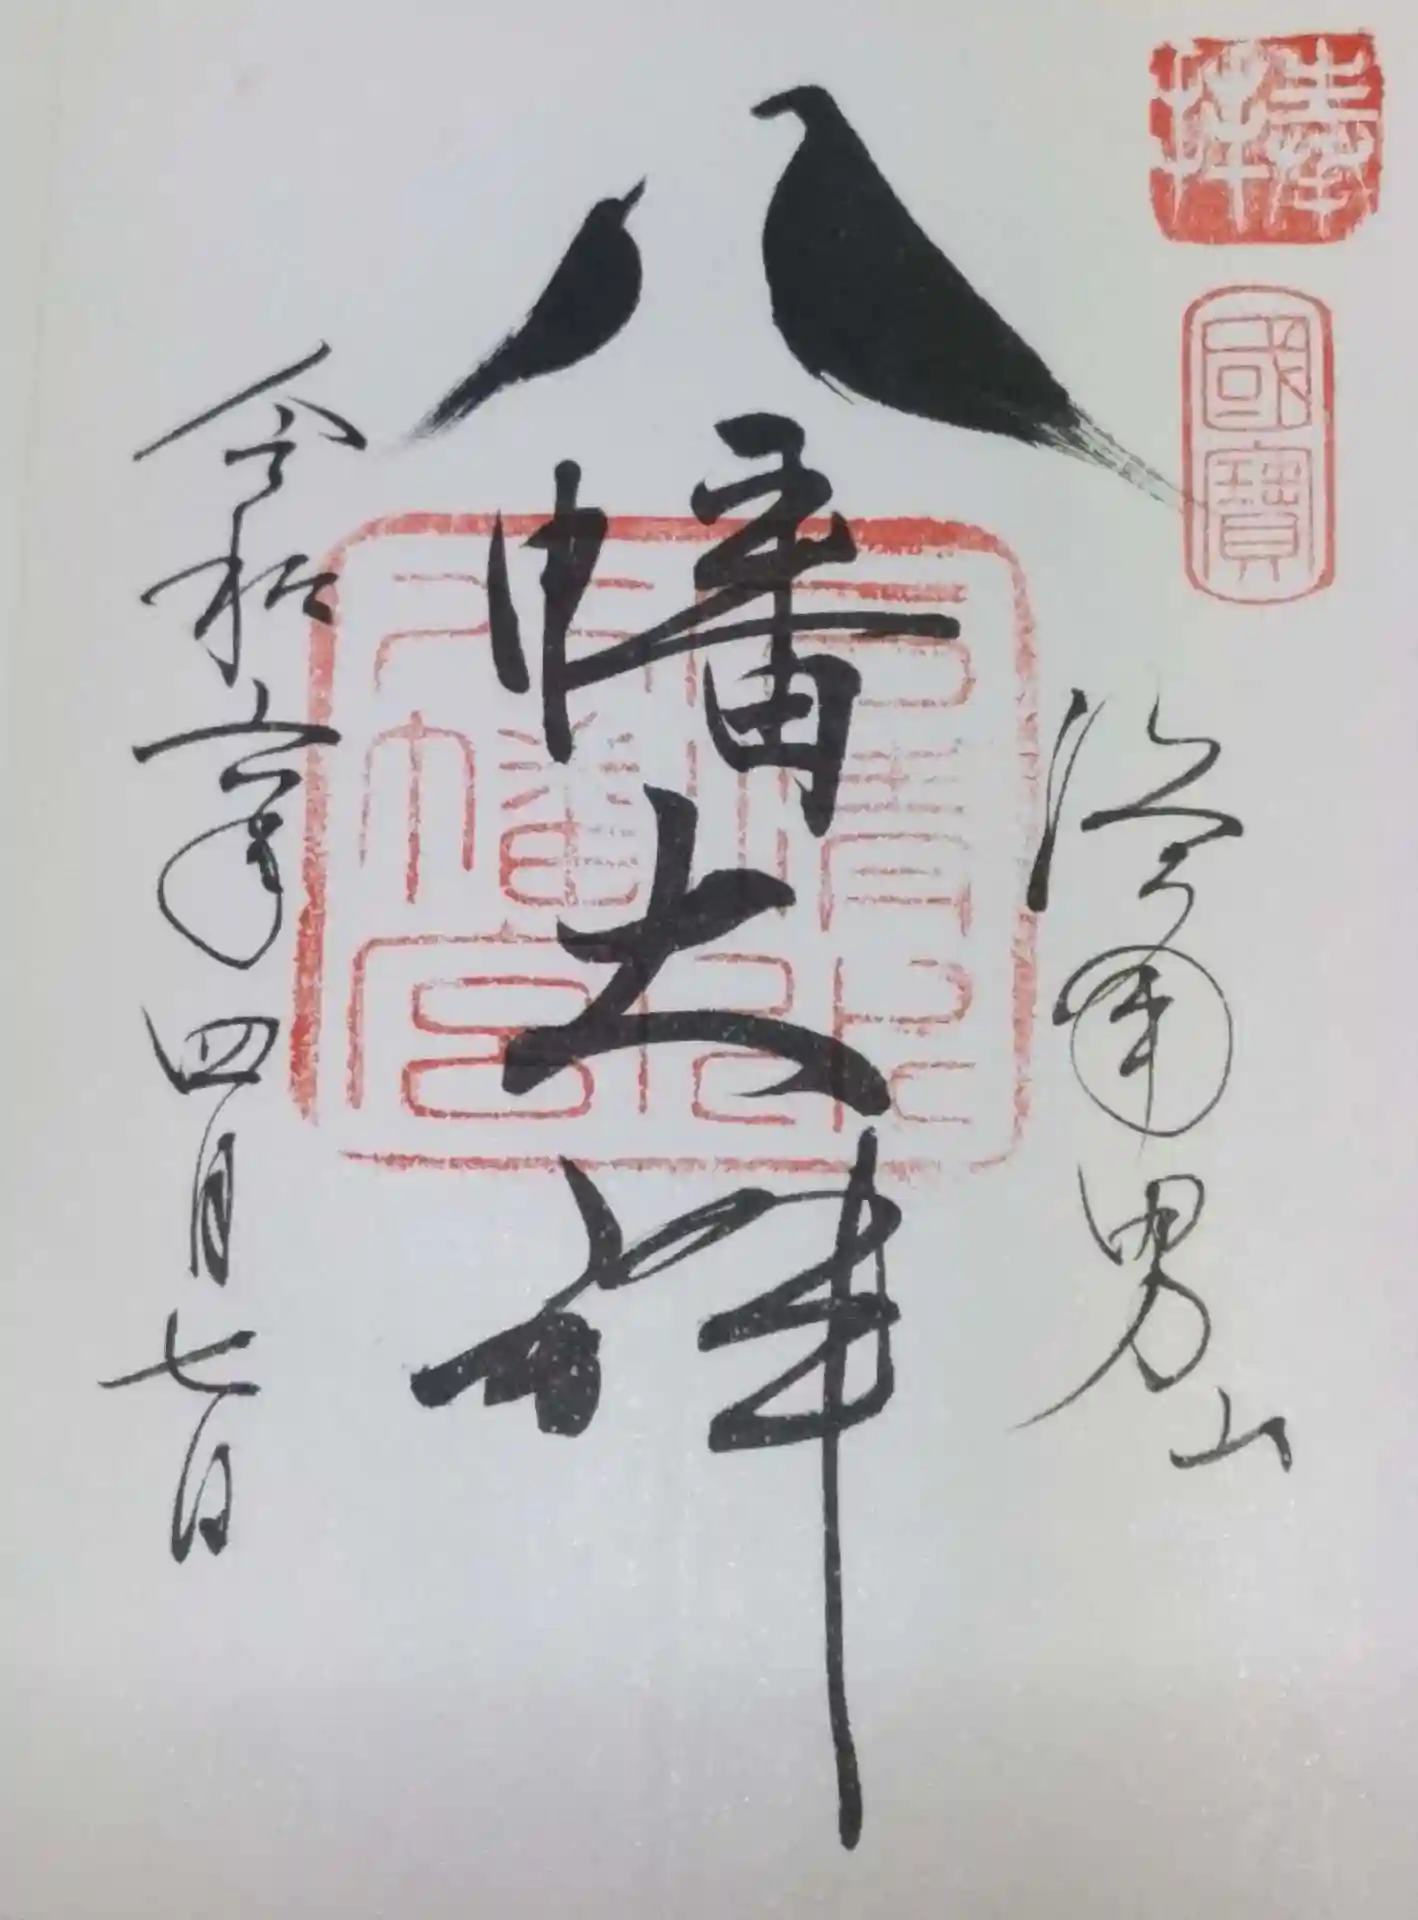 奉拝
國寶
洛南男山
八幡大神
石清水
八幡宮
令和六年四月七日